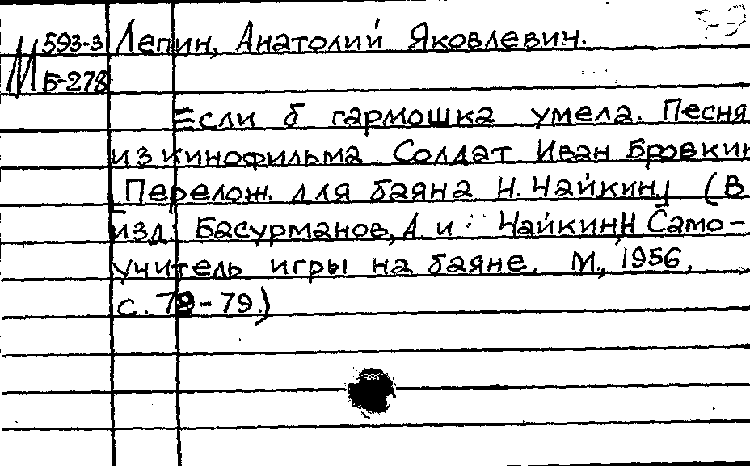 М 593-3 Лепин, Анатолий Яковлевич.
Б-278
Если б гармошка умела. Песня
из кинофильма Солдат Иван Бровкин
[Перелож. для баяна Н. Чайкин] (В
изд: Басурманов, А. и Чайкин, Н Само-
учитель игры на баяне. М., 1956,
с. 79-79.)